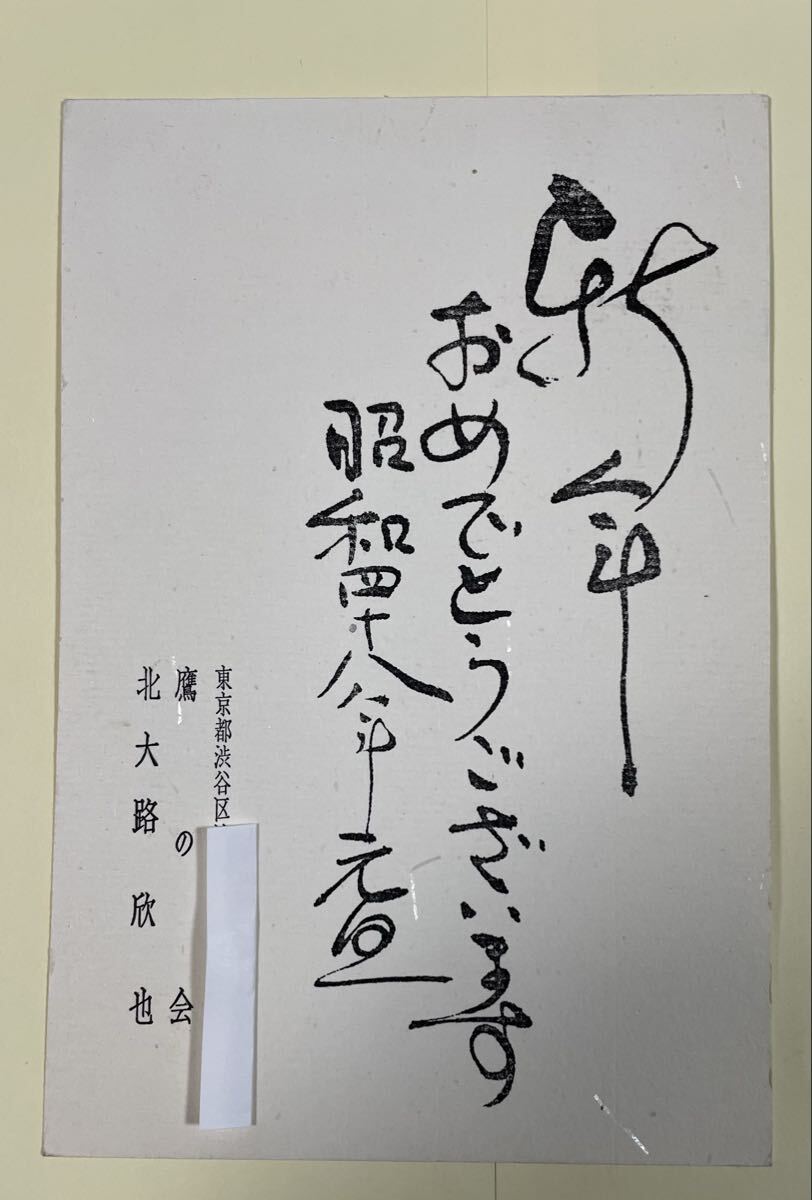 新年
おめでとうございます
昭和四十八年元旦
東京都渋谷区
鷹の会
北大路欣也